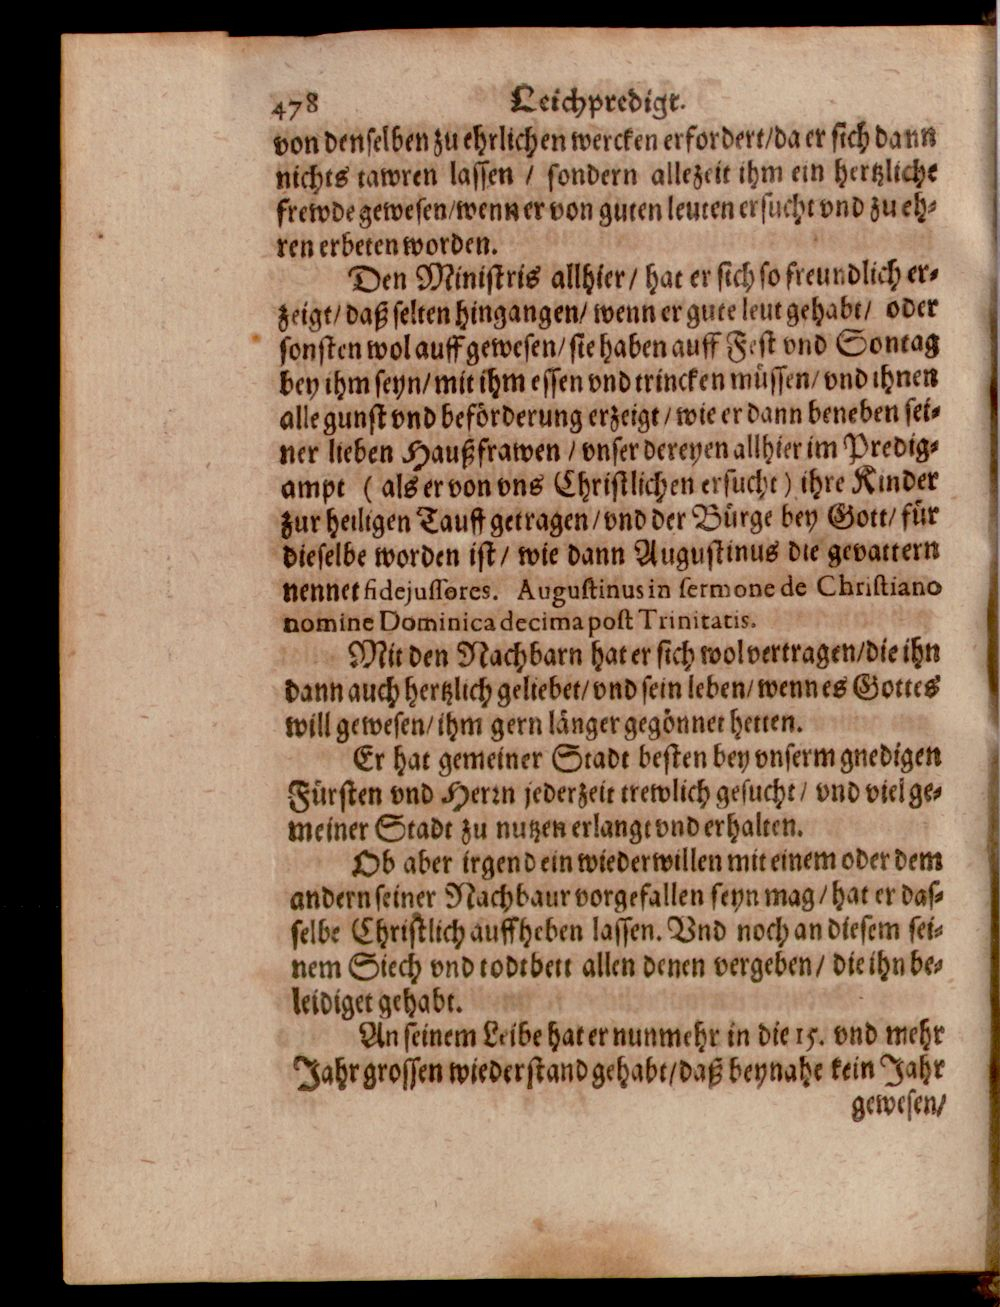 478 Leichpredigt.
von denselben zu ehrlichen wercken erfordert/da er sich dann
nichts tawren lassen / sondern allezeit ihm ein hertzliche
frewde gewesen/wenn er von guten leuten ersucht vnd zu eh-
ren erbeten worden.
Den Ministris allhier/ hat er sich so freundlich er-
zeigt/ daß selten hingangen/ wenn er gute leut gehabt/ oder
sonsten wol auff gewesen/ sie haben auff Fest vnd Sontag
bey ihm seyn/ mit ihm essen vnd trincken müssen/ vnd ihnen
alle gunst vnd beförderung erzeigt/ wie er dann beneben sei-
ner lieben Haußfrawen / vnser dereyen allhier im Predig-
ampt ( als er von vns Christlichen ersucht ) ihre Kinder
zur heiligen Tauff getragen/ vnd der Bürge bey Gott/ für
dieselbe worden ist/ wie dann Augustinus die gevattern
nennet fidejussores. Augustinus in sermone de Christiano
nomine Dominica decima post Trinitatis.
Mit den Nachbarn hat er sich wol vertragen/die ihn
dann auch hertzlich geliebet/ vnd sein leben/ wenn es Gottes
will gewesen/ ihm gern länger gegönnet hetten.
Er hat gemeiner Stadt besten bey vnserm gnedigen
Fürsten vnd Herrn jederzeit trewlich gesucht/ vnd viel ge-
meiner Stadt zu nutzen erlangt vnd erhalten.
Ob aber irgend ein wiederwillen mit einem oder dem
andern seiner Nachbaur vorgefallen seyn mag/ hat er das-
selbe Christlich auffheben lassen. Vnd noch an diesem sei-
nem Siech vnd todtbett allen denen vergeben/ die ihn be-
leidiget gehabt.
An seinem Leibe hat er nunmehr in die 15. vnd mehr
Jahr grossen wiederstand gehabt/daß beynahe kein Jahr
gewesen/